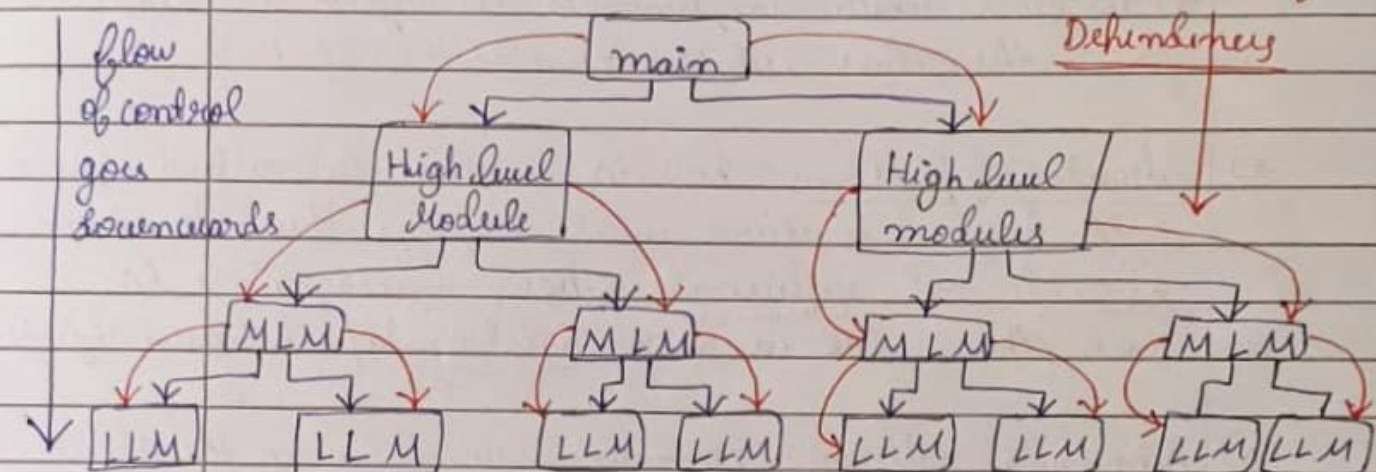 flow
of control
goes
downwards
main
Dependencies
High level
Module
High level
modules
MLM
MLM
MLM
MLM
LLM
LLM
LLM
LLM
LLM
LLM
LLM
LLM